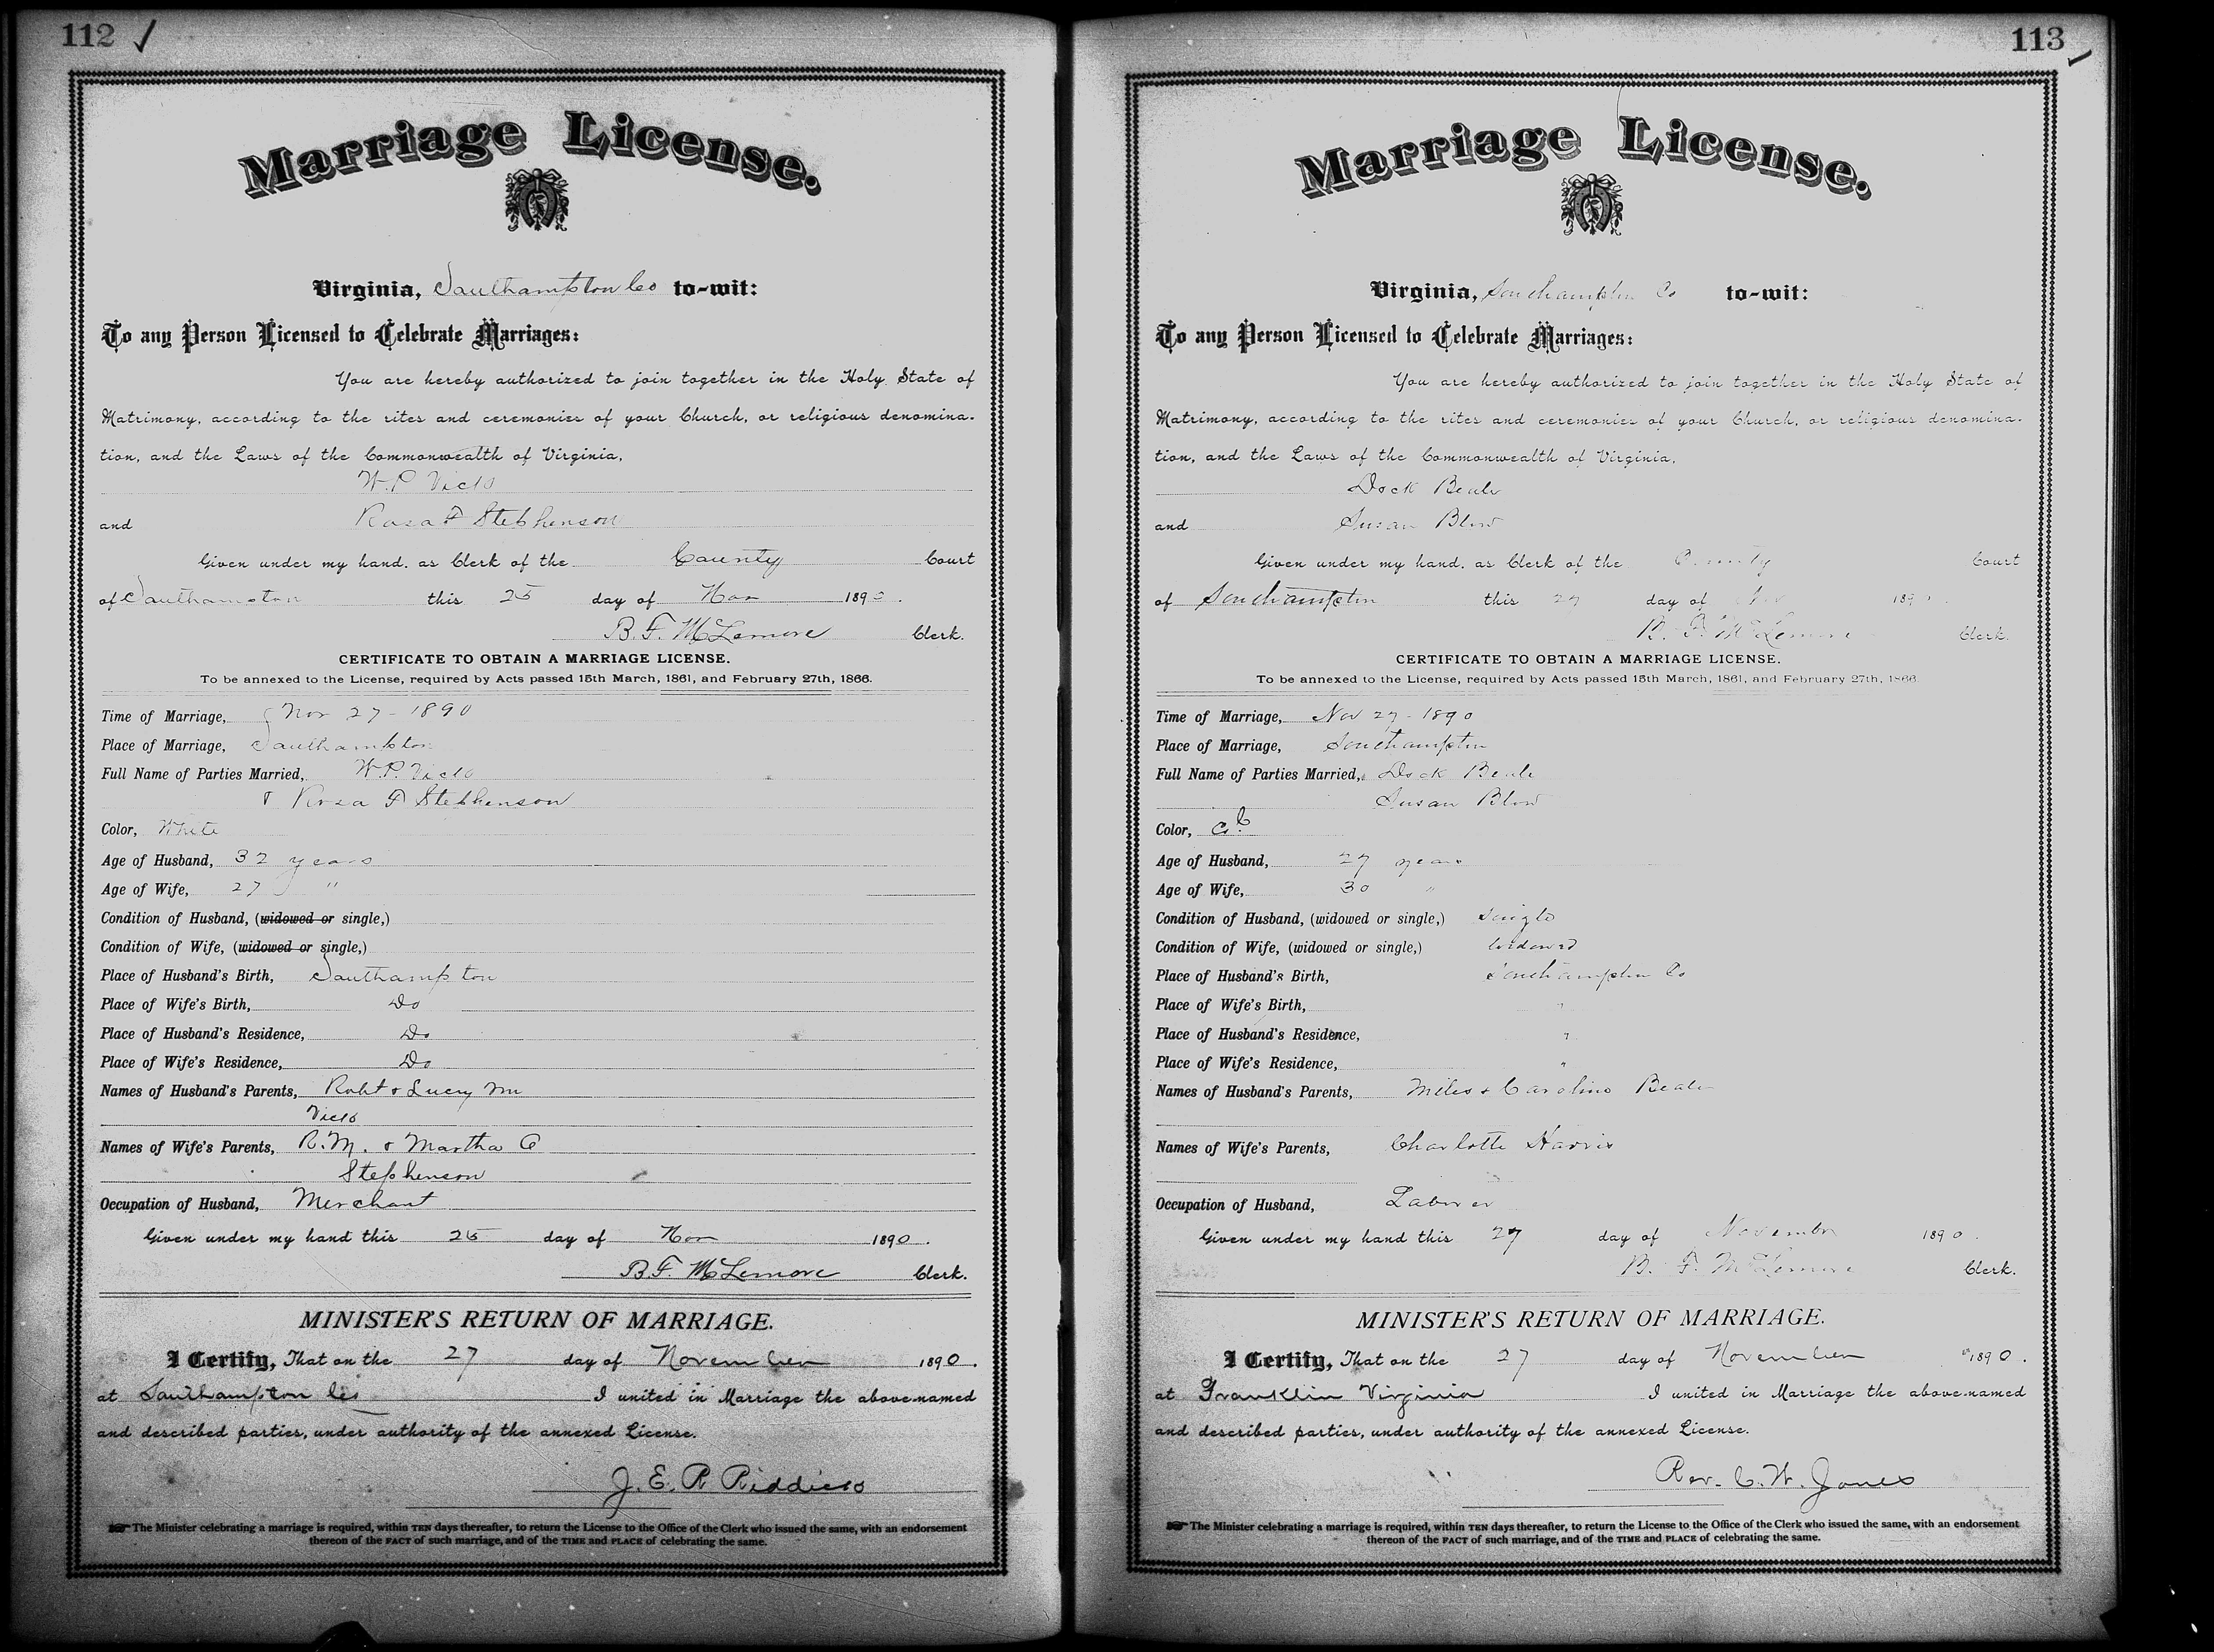 112 ✓
Marriage License.
Virginia, Southampton Co to-wit:
To any Person Licensed to Celebrate Marriages:
You are hereby authorized to join together in the Holy State of
Matrimony, according to the rites and ceremonies of your Church, or religious denomina-
tion, and the Laws of the Commonwealth of Virginia,
W. P. Vick
and Rosa F Stephenson
Given under my hand, as Clerk of the County Court
of Southampton this 25 day of Nov 1890.
B. F. McLemore Clerk.
CERTIFICATE TO OBTAIN A MARRIAGE LICENSE.
To be annexed to the License, required by Acts passed 15th March, 1861, and February 27th, 1866.
Time of Marriage, Nov 27 - 1890
Place of Marriage, Southampton
Full Name of Parties Married, W. P. Vick
& Rosa F Stephenson
Color, White
Age of Husband, 32 years
Age of Wife, 27 "
Condition of Husband, (widowed or single,)
Condition of Wife, (widowed or single,)
Place of Husband's Birth, Southampton
Place of Wife's Birth, Do
Place of Husband's Residence, Do
Place of Wife's Residence, Do
Names of Husband's Parents, Robt & Lucy
Vick
Names of Wife's Parents, R. M. & Martha
Stephenson
Occupation of Husband, Merchant
Given under my hand this 25 day of Nov 1890.
B. F. McLemore Clerk.
MINISTER'S RETURN OF MARRIAGE.
I Certify, That on the 27 day of November 1890.
at Southampton Co I united in Marriage the above-named
and described parties, under authority of the annexed License.
J. E. R Riddick
The Minister celebrating a marriage is required, within TEN days thereafter, to return the License to the Office of the Clerk who issued the same, with an endorsement
thereon of the FACT of such marriage, and of the TIME and PLACE of celebrating the same.
113
Marriage License.
Virginia, Southampton Co to-wit:
To any Person Licensed to Celebrate Marriages:
You are hereby authorized to join together in the Holy State of
Matrimony, according to the rites and ceremonies of your Church, or religious denomina-
tion, and the Laws of the Commonwealth of Virginia,
Dock Beale
and Susan Blow
Given under my hand, as Clerk of the County Court
of Southampton this 27 day of Nov 1890.
B. F. McLemore Clerk.
CERTIFICATE TO OBTAIN A MARRIAGE LICENSE.
To be annexed to the License, required by Acts passed 15th March, 1861, and February 27th, 1866.
Time of Marriage, Nov 27 - 1890
Place of Marriage, Southampton
Full Name of Parties Married, Dock Beale
Susan Blow
Color,
Age of Husband, 27 years
Age of Wife, 30 "
Condition of Husband, (widowed or single,) Single
Condition of Wife, (widowed or single,) widowed
Place of Husband's Birth, Southampton Co
Place of Wife's Birth, "
Place of Husband's Residence, "
Place of Wife's Residence, "
Names of Husband's Parents, Miles & Caroline Beale
Names of Wife's Parents, Charlotte Harris
Occupation of Husband, Laborer
Given under my hand this 27 day of November 1890.
B. F. McLemore Clerk.
MINISTER'S RETURN OF MARRIAGE.
I Certify, That on the 27 day of November 1890.
at Franklin Virginia I united in Marriage the above-named
and described parties, under authority of the annexed License.
Rev. C. W. Jones
The Minister celebrating a marriage is required, within TEN days thereafter, to return the License to the Office of the Clerk who issued the same, with an endorsement
thereon of the FACT of such marriage, and of the TIME and PLACE of celebrating the same.